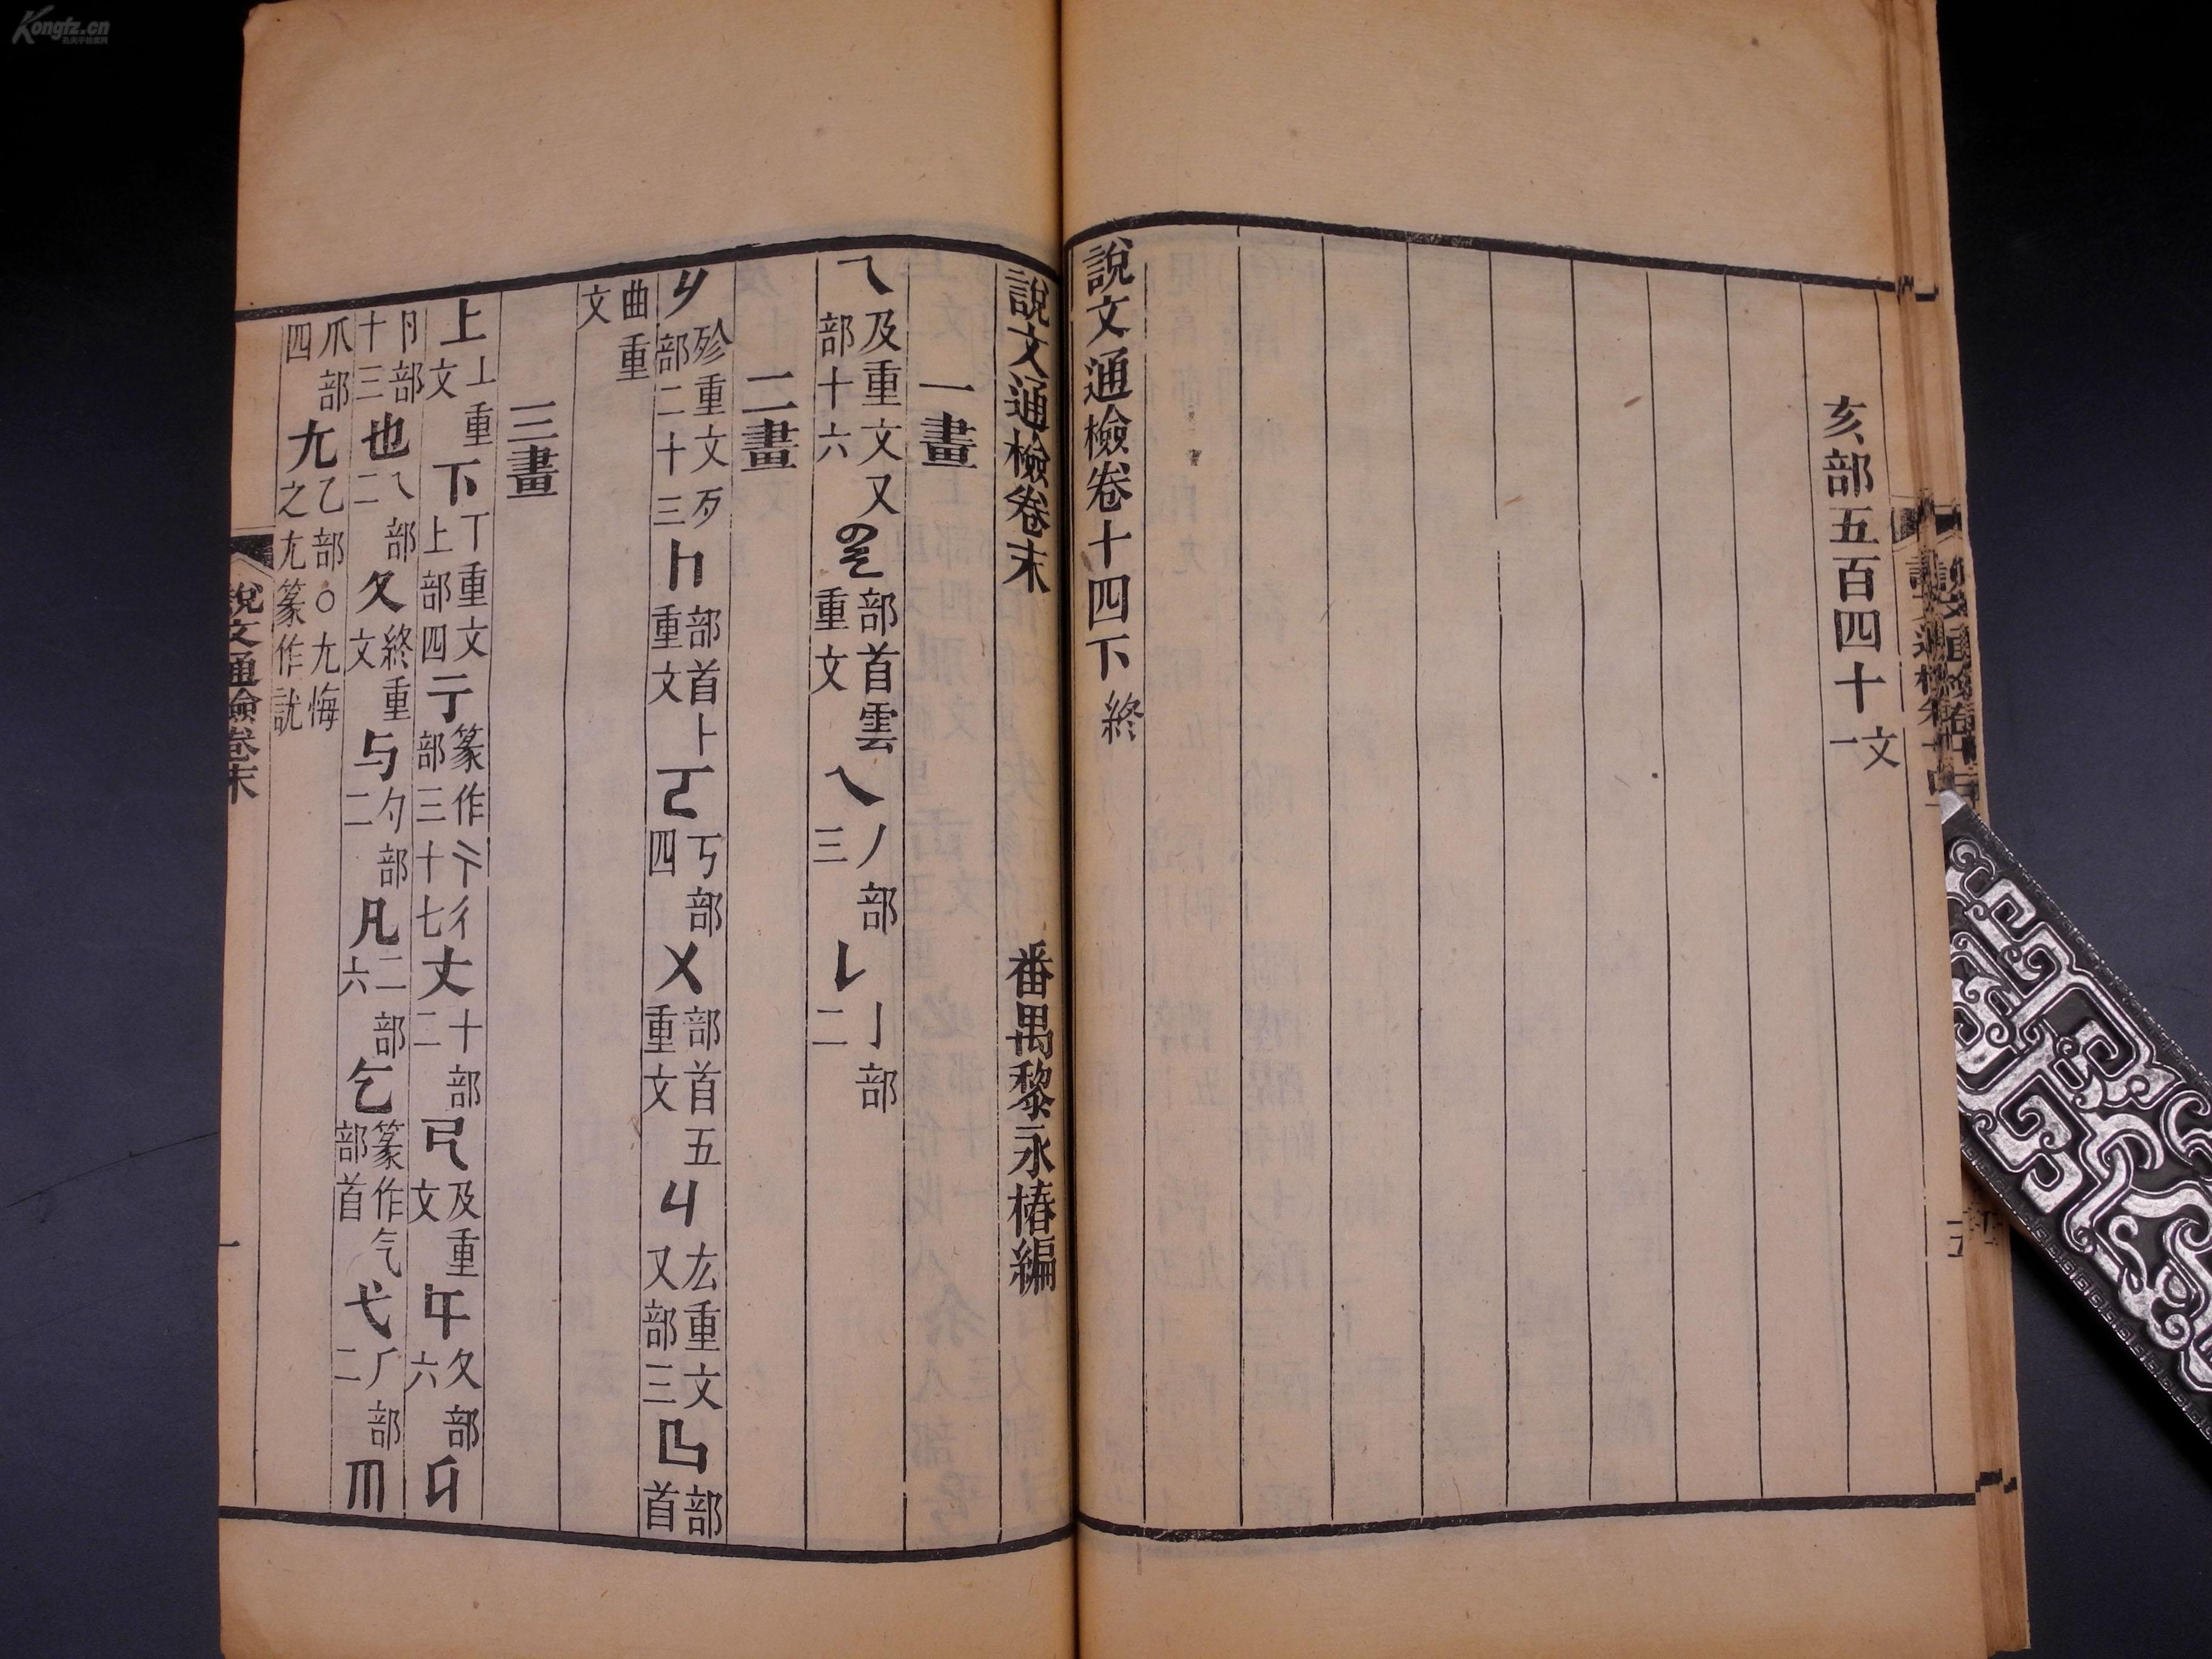 亥部五百四十一文
說文通檢卷十四下終
說文通檢卷末 番禺黎永椿編
一畫
乁及重文又部十六 部首雲重文 乀丿部三 𠄌亅部二
二畫
殄重文歹部二十三 部首卜重文 丂部四 㐅部首五重文 厷重文又部三 凵部首
曲重文
三畫
上丄重文 下丅重文上部四 亍篆作彳部三十七 丈十部二 及重文 㐄夂部六
冃部十三 也乁部二 夂終重文 与勺部二 凡二部六 乞篆作气部首 弋厂部二
爪部四 尢乙部○尢悔之尢篆作訧
說文通檢卷末 一
Kongfz.cn